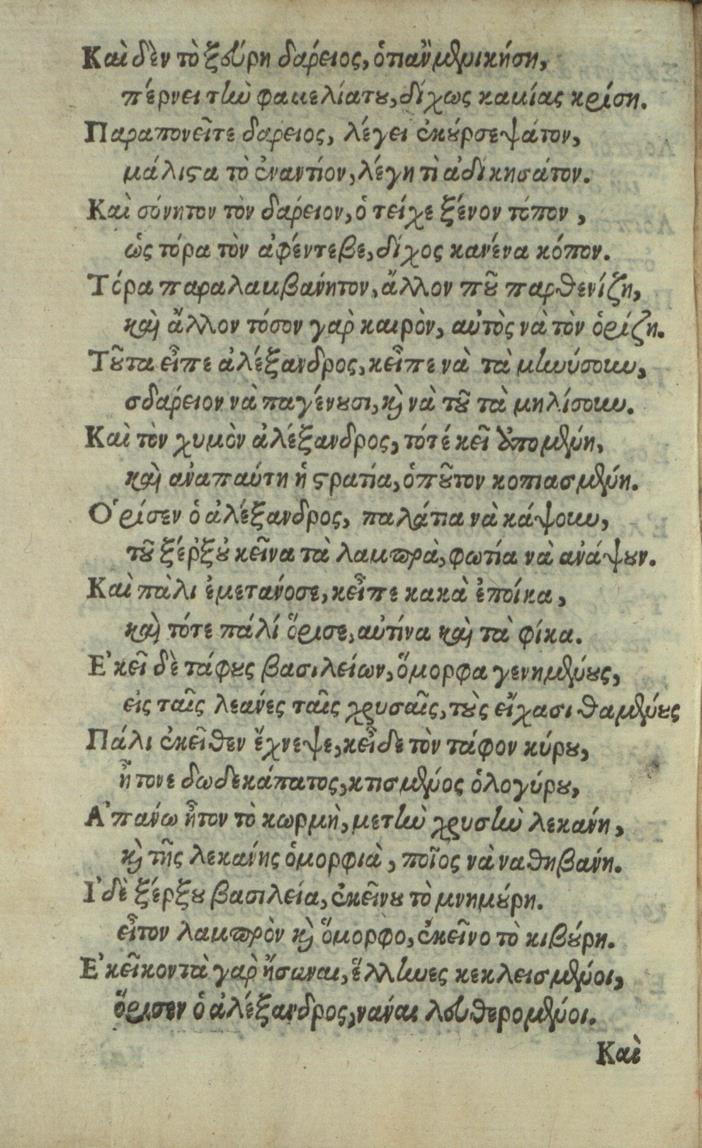 Καὶ δὲν τὸ ξεύρη δαρεῖος, ὁπαῢ μεριμνήση,
πέρνει τὴν φαμελίατου, δίχως καμίας κρίση.
Παραπονεῖτε δαρεῖος, λέγει ἐκούρσεψάτον,
μάλιστα τὸ ἐναντίον, λέγη τὶ ἀδικησάτον.
Καὶ σόνητον τὸν δαρεῖον, ὁ τεῖχε ξένον τόπον,
ὡς τόρα τὸν ἀφέντεβε, δίχος κανένα κόπον.
Τόρα παραλαμβάνητον, ἄλλον ποῦ παρθενίζη,
καὶ ἄλλον τόσον γὰρ καιρὸν, αὐτὸς νὰ τὸν ὁρίζη.
Τοῦτα εἶπε ἀλέξανδρος, κεῖπε νὰ τὰ μηνύσουν,
σδαρεῖον νὰ παγένουσι, καὶ νὰ τοῦ τὰ μηλίσουν.
Καὶ τὸν χυμὸν ἀλέξανδρος, τότέ κεῖ ὑπομένη,
καὶ ἀναπαύτη ἡ στρατία, ὁποῦτον κοπιασμένη.
Ὁρίσεν ὁ ἀλέξανδρος, παλάτια νὰ κάψουν,
τοῦ ξέρξου κεῖνα τὰ λαμπρὰ, φωτία νὰ ἀνάψουν.
Καὶ πάλι ἐμετανόσε, κεῖπε κακὰ ἐποίκα,
καὶ τότε πάλί ὅρισε, αὐτίνα καὶ τὰ φίκα.
Ἐκεῖ δὲ τάφους βασιλείων, ὅμορφα γενημένους,
εἰς ταῖς λεανές ταῖς χρυσαῖς, τοὺς εἴχασι θαμένους
Πάλι ἐκεῖθεν ἔχνεψε, κεῖδε τὸν τάφον κύρου,
ἦτονε δωδεκάπατος, κτισμένος ὁλογύρου,
Ἀπάνω ἦτον τὸ κωρμὴ, μετὴν χρυσὴν λεκανη,
καὶ τῆς λεκανης ὁμορφιὰ, ποῖος νὰ ναθηβανη.
Ἰδὲ ξέρξου βασιλεία, ἐκεῖνου τὸ μνημούρη.
εἶτον λαμπρὸν καὶ ὅμορφο, ἐκεῖνο τὸ κιβούρη.
Ἐκεῖκοντὰ γὰρ ἤσαναι, ἕλληνες κεκλεισμένοι,
ὅρισεν ὁ ἀλέξανδρος, νάναι λευθερομένοι.
Καὶ